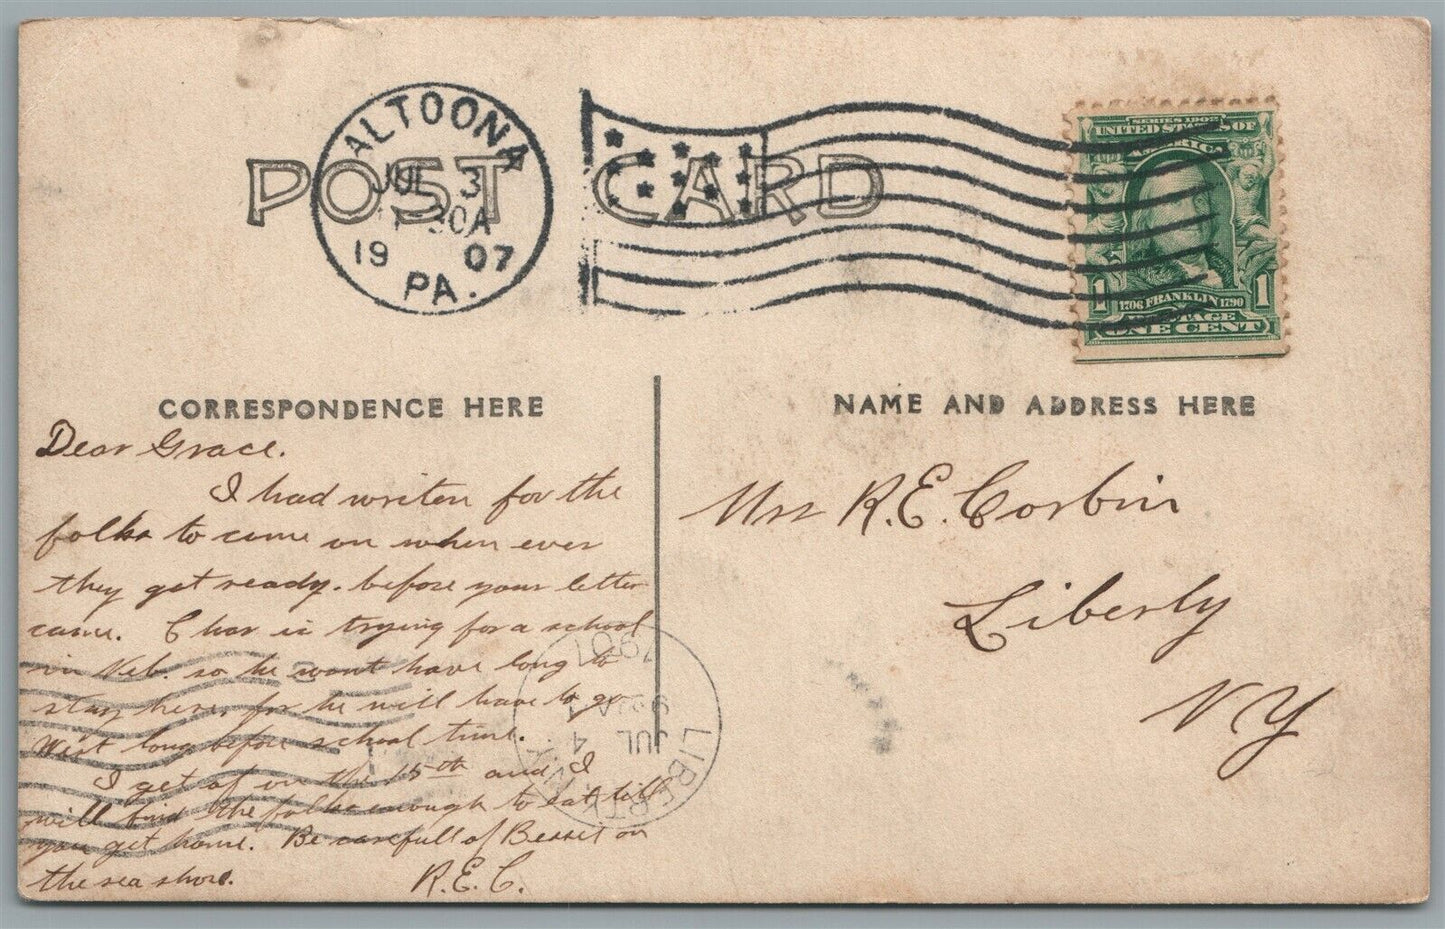 POST CARD
ALTOONA
JUL 3
30A
19 07
PA.
SERIES 1902
UNITED STATES OF
AMERICA
1 1706 FRANKLIN 1790 1
POSTAGE
ONE CENT
CORRESPONDENCE HERE
Dear Grace.
I had writen for the
folks to come on when ever
they get ready. before your letter
came. Char is trying for a school
in Neb. so he wont have long to
stay here, for he will have to go
West long before school time.
I get of on the 15th and I
will find the folks enough to eat till
you get home. Be carefull of Bessie on
the sea shore.
R.E.C.
NAME AND ADDRESS HERE
Mrs R.E. Corbin
Liberty
NY
LIBERTY
JUL 4
1907